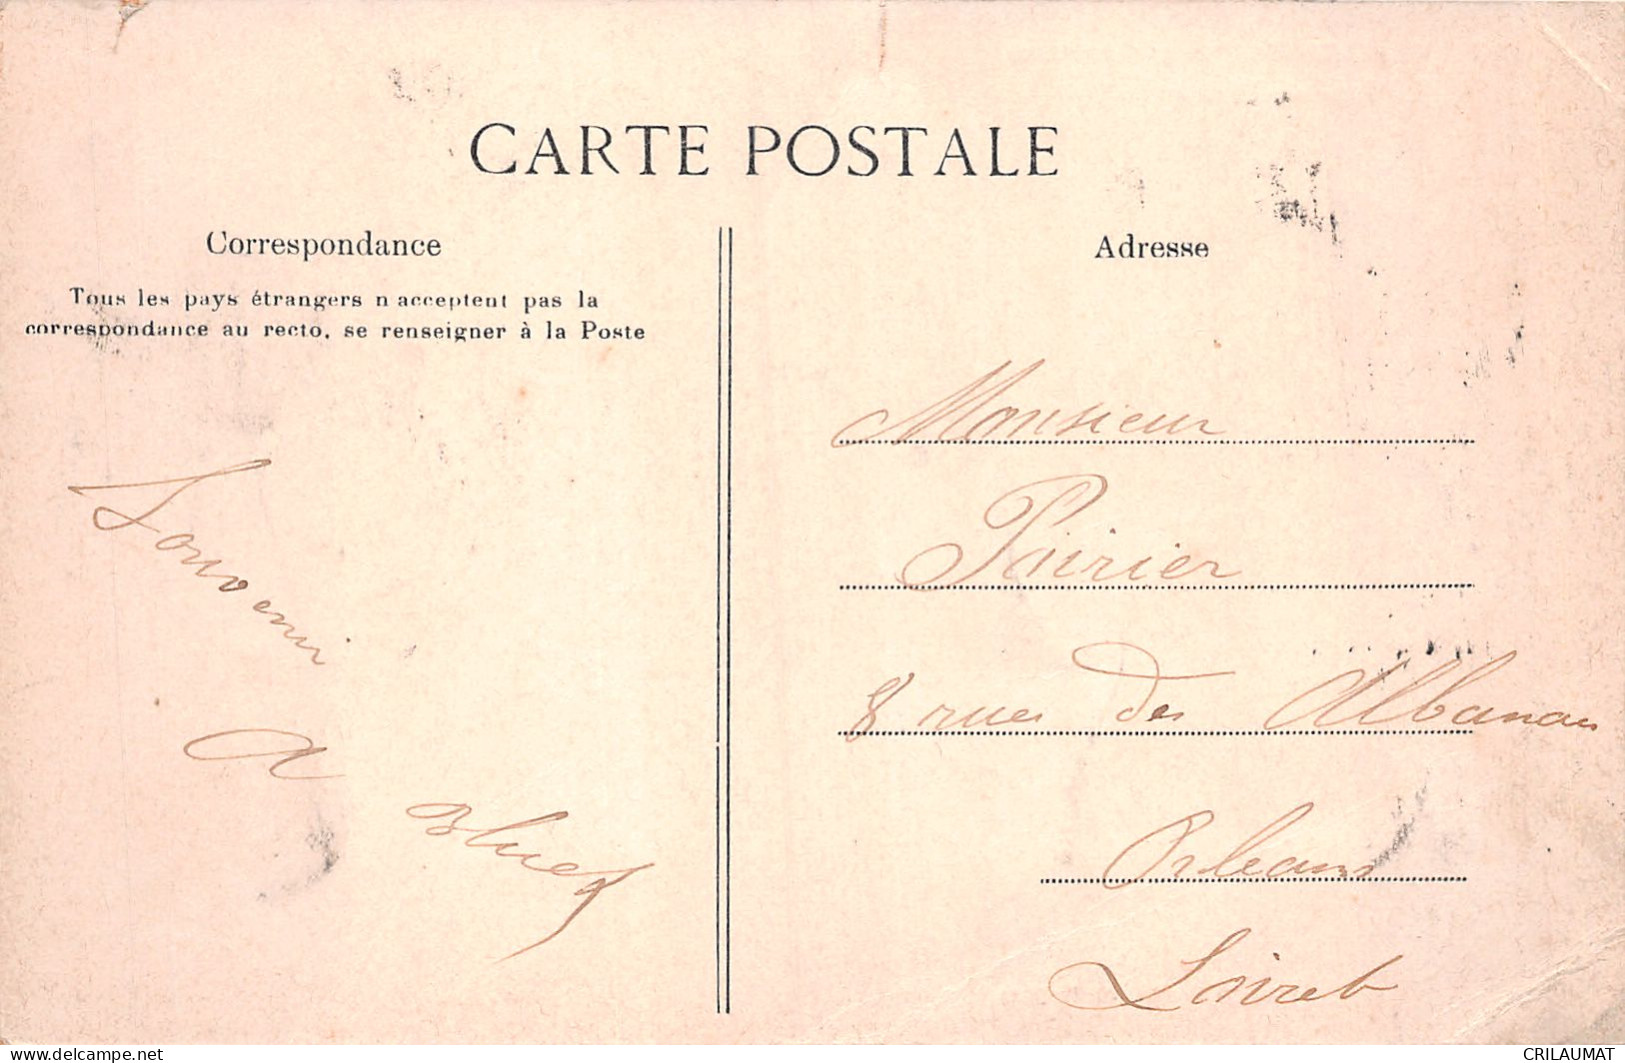 CARTE POSTALE
Correspondance
Tous les pays étrangers n acceptent pas la
correspondance au recto, se renseigner à la Poste
Souvenir
A
Adresse
Monsieur
Poirier
8 rue des Albanais
Orleans
Loiret
delcampe.net
CRILAUMAT